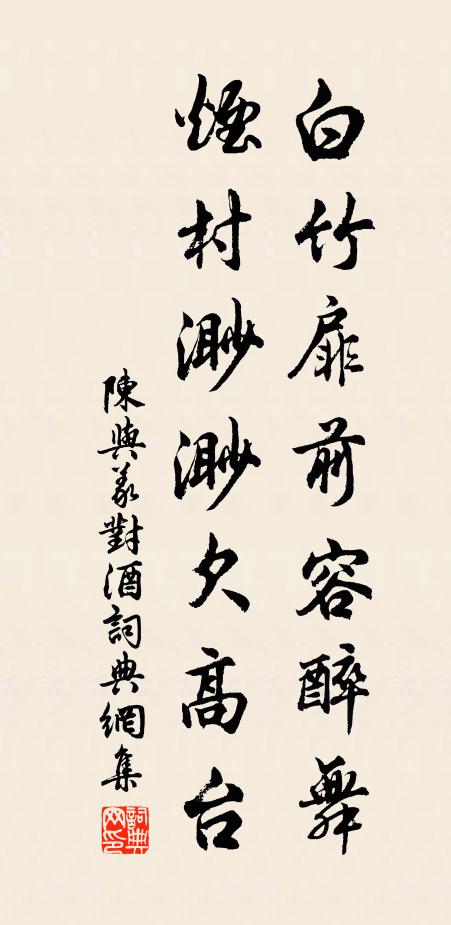 白竹扉前容醉舞
煙村渺渺欠高台
陳與義對酒詞典網集
詞典网印